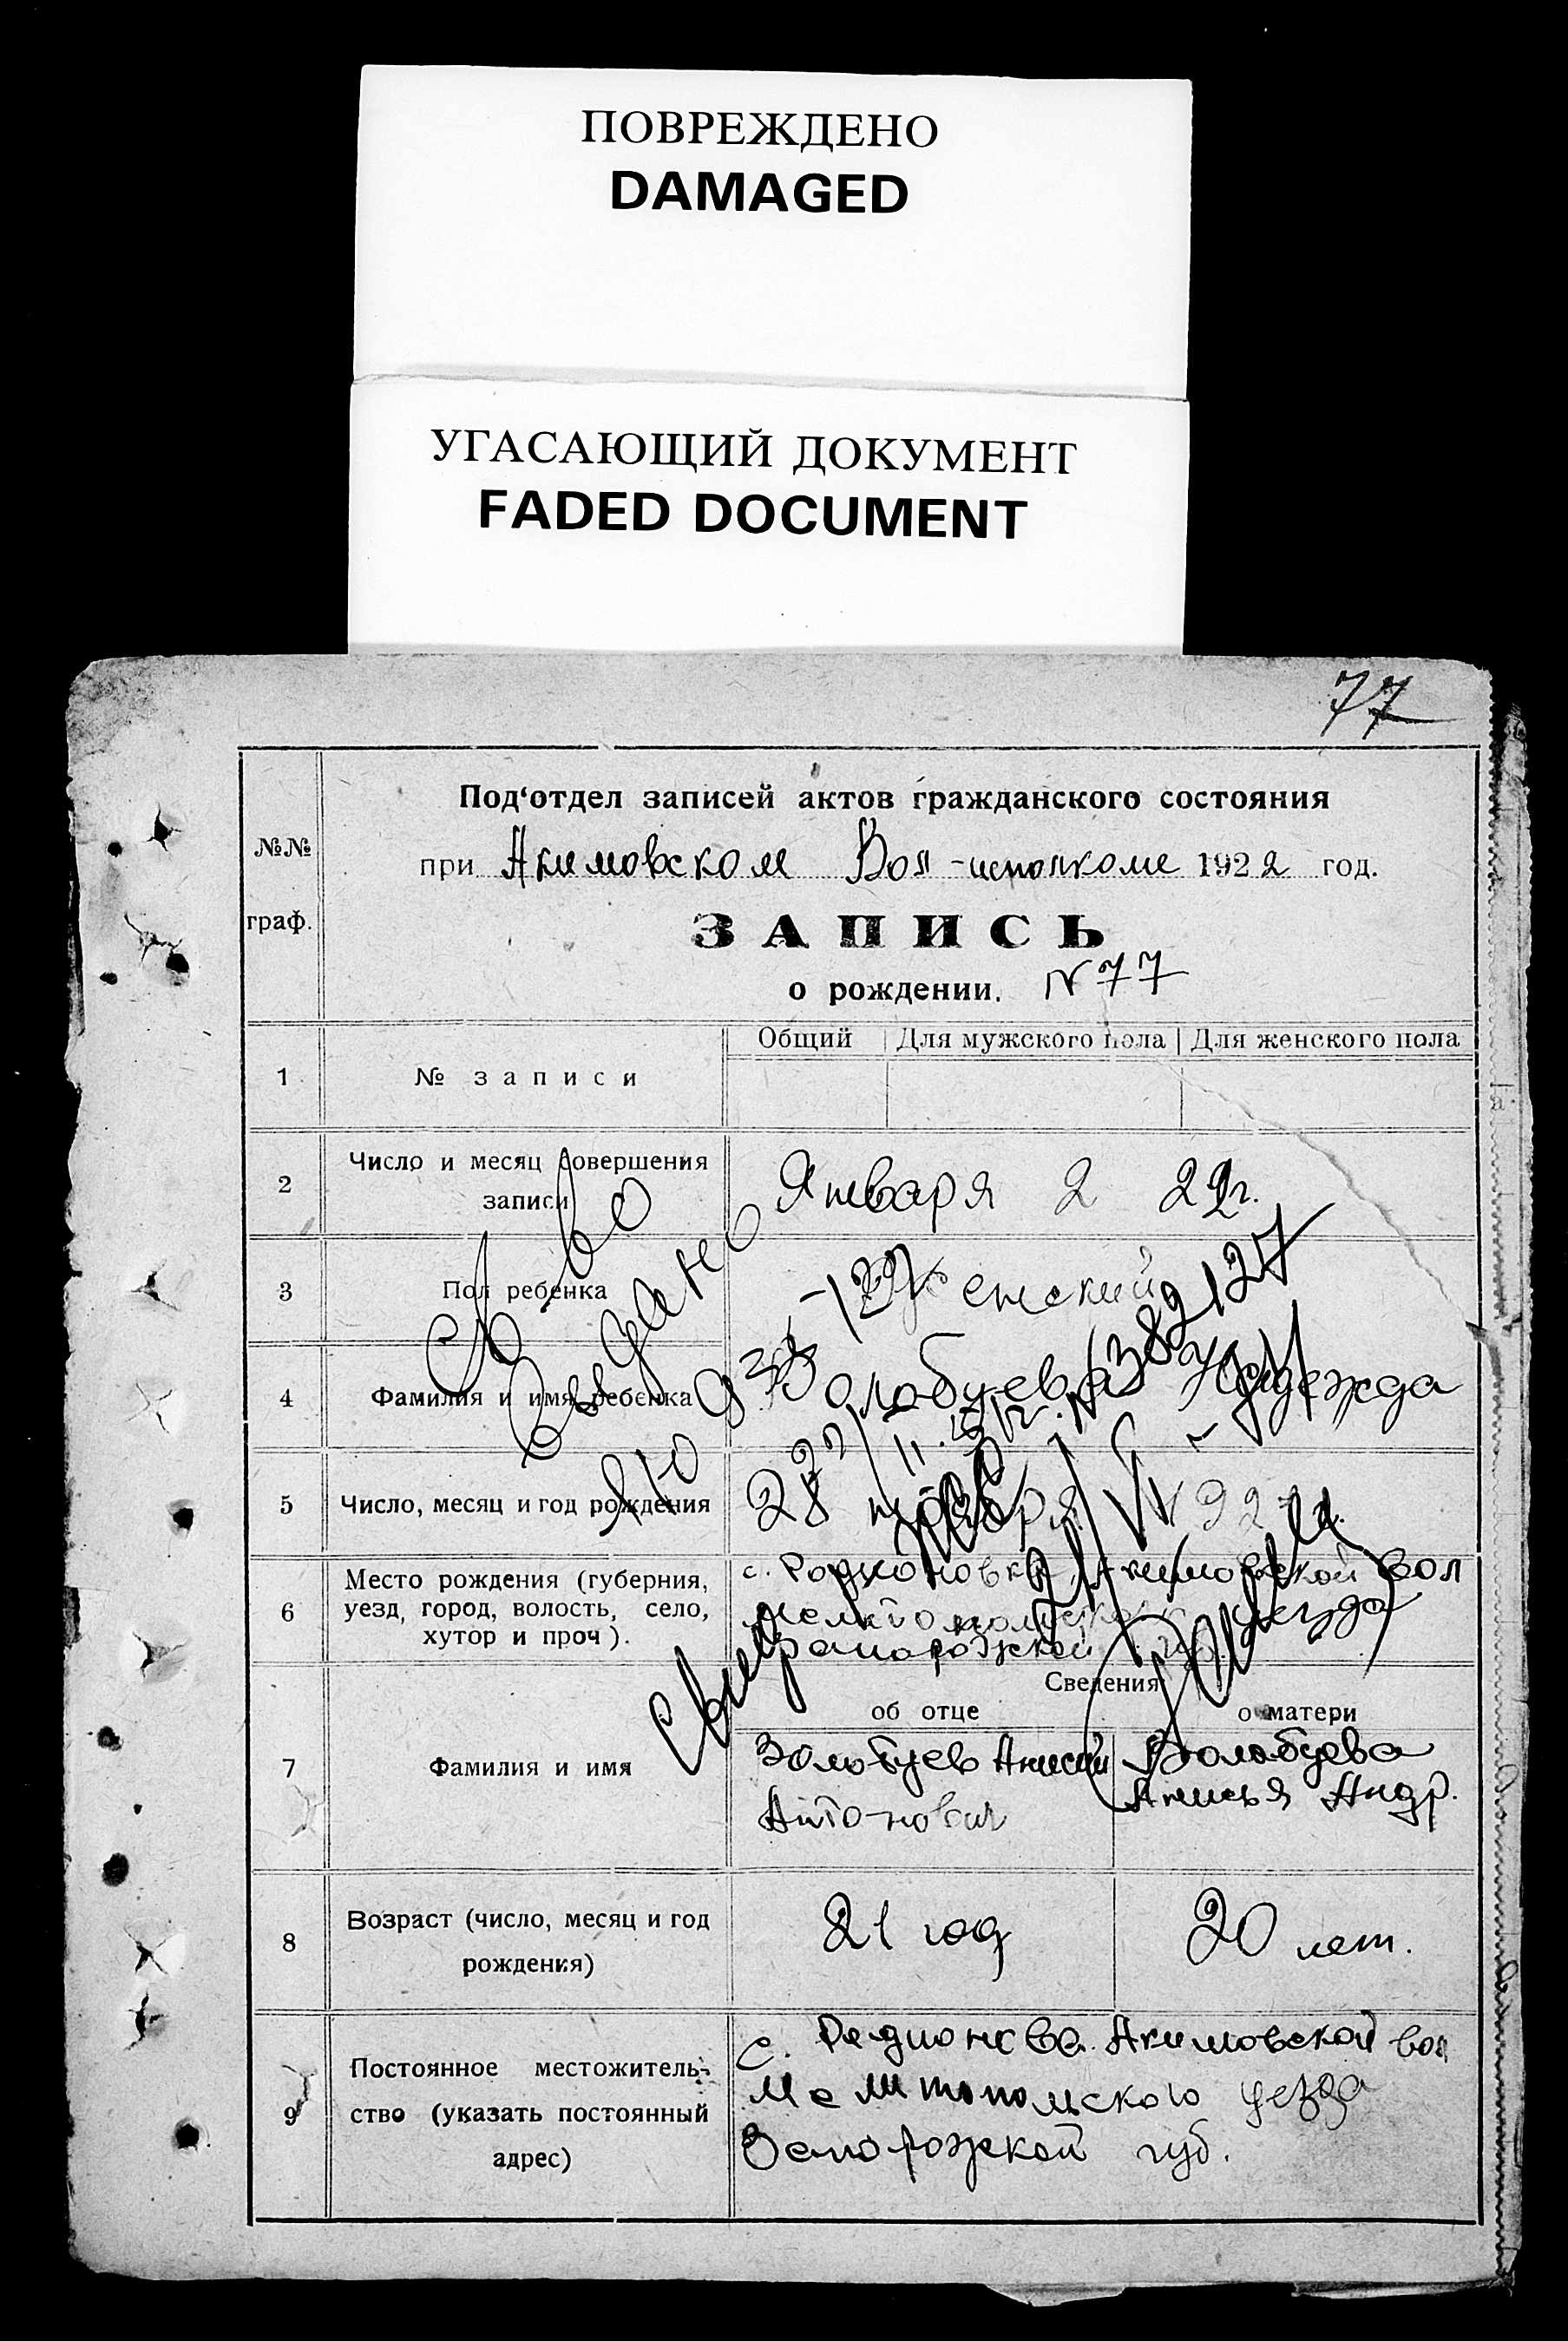 ПОВРЕЖДЕНО
DAMAGED
УГАСАЮЩИЙ ДОКУМЕНТ
FADED DOCUMENT
77
№№ граф.
Под‘отдел записей актов гражданского состояния
при Акимовском Вол-исполкоме 1922 год.
ЗАПИСЬ
о рождении. N 77
Общий Для мужского пола Для женского пола
1 № записи
2 Число и месяц совершения записи
Января 2 22г.
3 Пол ребенка
Женский
4 Фамилия и имя ребенка
Волобуева Надежда
5 Число, месяц и год рождения
28
6 Место рождения (губерния, уезд, город, волость, село, хутор и проч).
с. Родионовка Акимовской вол
Мелитопольского уезда
Запорожской
Сведения
об отце о матери
7 Фамилия и имя
Волобуев Анисий Антонович
Волобуева Анисья Андр.
8 Возраст (число, месяц и год рождения)
21 год 20 лет.
9 Постоянное местожительство (указать постоянный адрес)
с. Радионовка Акимовской вол
Мелитопольского уезда
Запорожской губ.
Св-во
Выдано